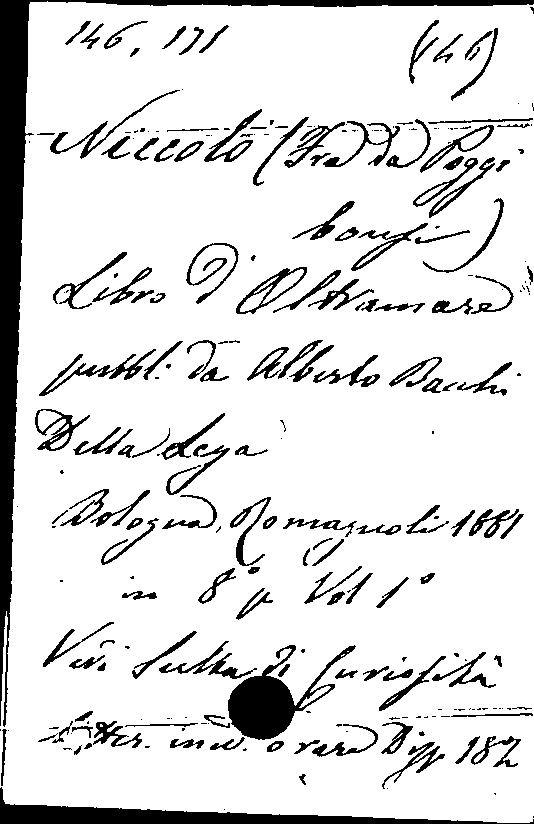 146, 171 (146)
Niccolò (Fra da Poggi
bonsi)
Libro d'Oltramare
pubbl: da Alberto Bacchi
Della Lega
Bologna, Romagnoli 1881
in 8° p Vol 1°
Vedi Scelta di Curiosità
Letter. ined. o rare Disp. 182